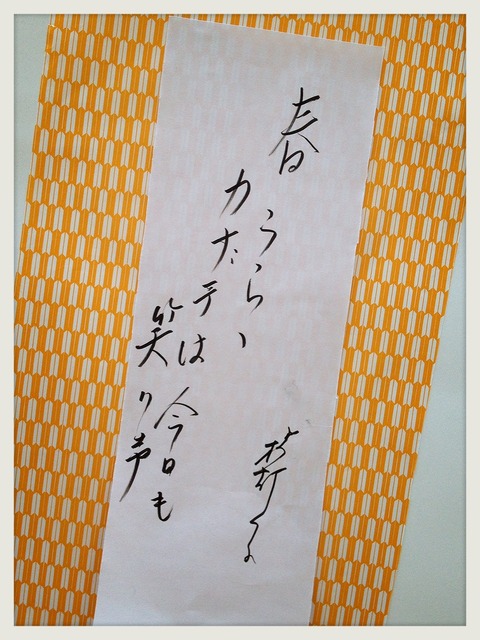 春うらら、
カナデは今日も
笑い声